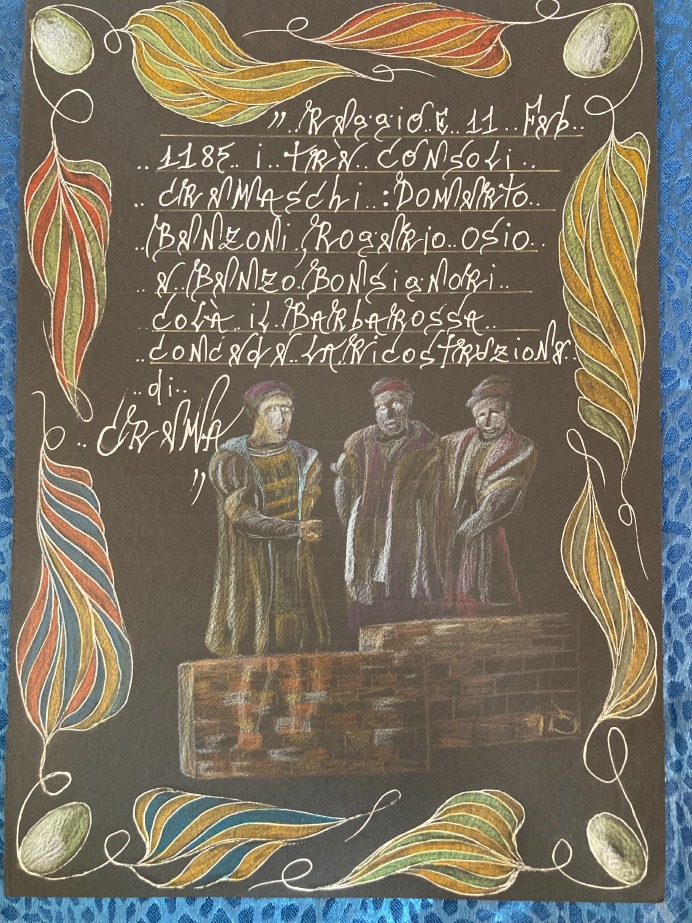 "..Reggio E. 11.. Feb..
..1185.. i.. trè.. consoli..
..cremaschi..:Domerto..
..Benzoni, Rogerio.. Osio..
..e.. Benzo.. Bonsignori..
..colà.. il.. Barbarossa..
..concede.. la.. ricostruzione..
..di..
..Crema
"